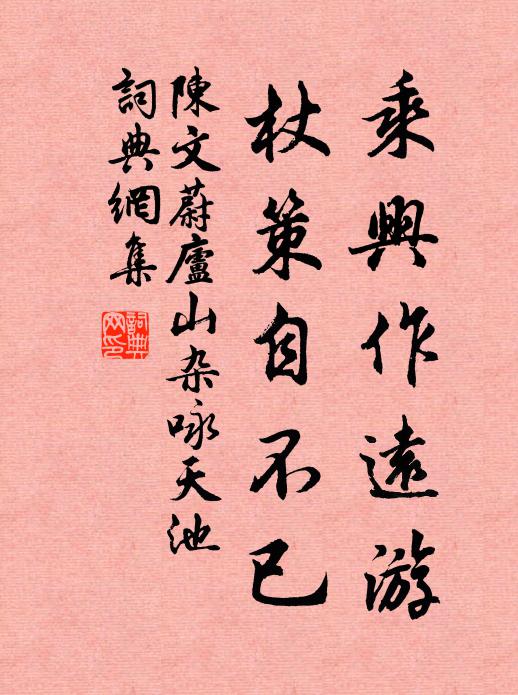 乘興作遠游
杖策自不已
陳文蔚廬山杂咏天池
詞典網集
詞典
网印